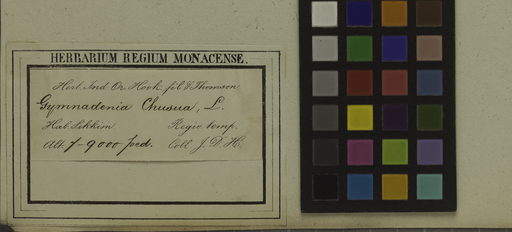 HERBARIUM REGIUM MONACENSE.
Herb. Ind Or Hook fil & Thomson
Gymnadenia Chusua, L.
Hab. Sikkim Regio temp.
Alt. 7-9000 ped. Coll J. D. H.